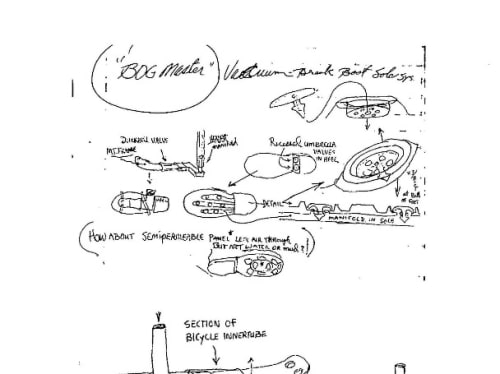 "BOG Master" Vacuum-Break Boot Sole Sys.
DUCKBILL VALVE
RECESSED UMBRELLA
VALVES
IN HEEL
DETAIL
MANIFOLD IN SOLE
(HOW ABOUT SEMIPERMEABLE PANEL LETS AIR THROUGH
BUT NOT WATER OR mud?)
SECTION OF
BICYCLE INNERTUBE